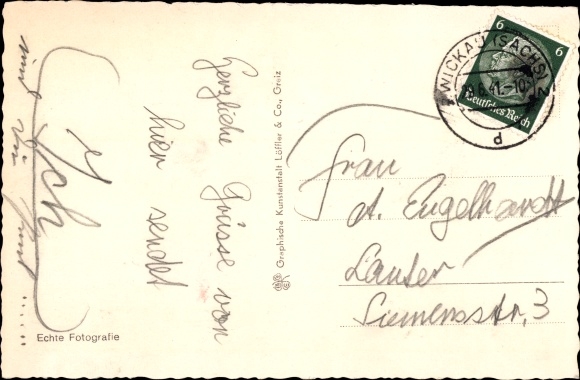 Herzliche Grüsse von
hier sendet
Ich
und
Echte Fotografie
Graphische Kunstanstalt Löffler & Co., Greiz
ZWICKAU (SACHS) 2
6.41.-10
d
6 6
Deutsches Reich
Frau
A. Engelhardt
Lauter
Siemensstr. 3